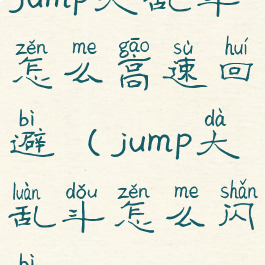 jump大乱斗
zěn me gāo sù huí
怎么高速回
bì dà
避（jump大
luàn dǒu zěn me shǎn
乱斗怎么闪
bì